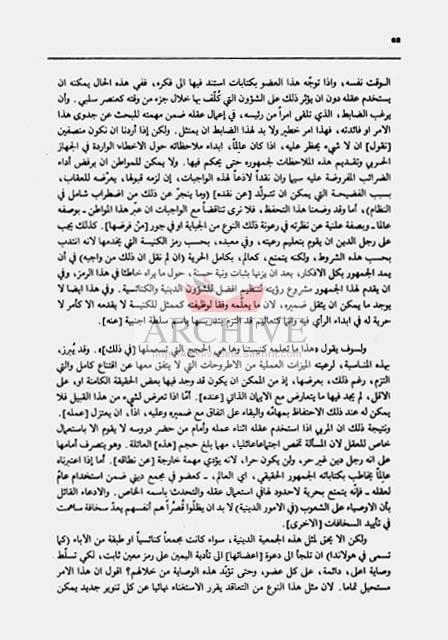 ٤٥
الوقت نفسه، واذا توجّه هذا العضو بكتابات استند فيها الى فكره، ففي هذه الحال يمكنه ان
يستخدم عقله دون ان يؤثر ذلك على الشؤون التي كُلّف بها خلال جزء من وقته كعنصر سلبي. وأن
يرغب الضابط، الذي تلقى امراً من رئيسه، في إعمال عقله ضمن مهمته للبحث عن جدوى هذا
الامر او فائدته، فهذا امر خطير ولا بد لهذا الضابط ان يمتثل. ولكن إذا أردنا ان نكون منصفين
[نقول] ان لا شيء يحظر عليه، اذا كان عالماً، ابداء ملاحظاته حول الاخطاء الواردة في الجهاز
الحربي وتقديم هذه الملاحظات لجمهوره حتى يحكم فيها. ولا يمكن للمواطن ان يرفض أداء
الضرائب المفروضة عليه سيما وان نقداً لاذعاً لهذه الواجبات، إن لزمه قبولها، يعرّضه للعقاب،
بسبب الفضيحة التي يمكن ان تتولّد [عن نقده] (وما ينجرّ عن ذلك من اضطراب شامل في
النظام)، أما وقد وضعنا هذا التحفظ، فلا نرى تناقضاً مع الواجبات ان عبّر هذا المواطن ـ بوصفه
عالماً ـ وبصفة علنية عن نظرته في رعونة ذلك النوع من الجباية او في جور [منْ فرضها]. كذلك يجب
على رجل الدين ان يقوم بتعليم رعيته، وفي معبده، بحسب رمز الكنيسة التي يخدمها لانه انتدب
بحسب هذه الشروط، ولكنه يتمتع، كعالم، بكامل الحرية (ان لم نقل ان ذلك من واجبه) في أن
يمد الجمهور بكل الافكار، بعد ان يزنها بثبات ونية حسنة، حول ما يراه خاطئا في هذا الرمز، وفي
ان يقدم لهذا الجمهور مشروع رؤيته لتنظيم افضل للشؤون الدينية والكنائسية. وفي هذا ايضا لا
يوجد ما يمكن ان يثقل ضميره، لان ما يعلّمه وفقا لوظيفته كممثل للكنيسة لا يقدمه الا كأمر لا
حرية له في ابداء الرأي فيه وانما كتعاليم قد التزم بتدريسها باسم سلطة اجنبية [عنه].
ARCHIVE
ولسوف يقول «هذا ما تعلمه كنيستنا وها هي الحجج التي تستعملها [في ذلك]». وقد يُبرز،
بهذه المناسبة، لرعيته الميزات العملية من الاطروحات التي لا يتفق معها عن اقتناع كامل والتي
التزم، رغم ذلك، بعرضها، إذ من الممكن ان يكون قد وجد فيها بعض الحقيقة الكامنة او، على
الاقل، لم يجد فيها ما يتعارض مع الايمان الذاتي [عنده]. أمّا اذا تعرض لشيء من هذا القبيل فلا
يمكن له عند ذلك الاحتفاظ بمهامّه والبقاء على اتفاق مع ضميره وعليه، اذاً، ان يعتزل [عمله].
ونتيجة ذلك ان المربي اذا استخدم عقله اثناء عمله وأمام من حضر دروسه لا يقوم الا باستعمال
خاص للعقل لان المسألة تخص اجتماعاعائليا، مهما بلغ حجم [هذه] العائلة. وهو يتصرف أمامها
على انه رجل دين غير حر، ولن يكون حرا، لانه يؤدي مهمة خارجة [عن نطاقه]. أما إذا اعتبرناه
عالماً يخاطب بكتاباته الجمهور الحقيقي، اي العالم، ـ كعضو في مجمع ديني ضمن استخدام عامّ
لعقله ـ فإنّه يتمتع بحرية لاحدود لها في استعمال عقله والتحدث باسمه الخاص. والادعاء القائل
بأن الاوصياء على الشعوب (في الامور الدينية) لا بد ان يظلّوا قُصّراً هم أنفسهم يعدّ سخافة ساهمت
في تأبيد السخافات [الاخرى].
ولكن الا يحق لمثل هذه الجمعية الدينية، سواء كانت مجمعاً كنائسياً او طبقة من الآباء (كما
تسمى في هولاندا) ان تلجأ الى دعوة [اعضائها] الى تأدية اليمين على رمز معين ثابت، لكي تسلّط
وصاية اعلى، دائمة، على كل عضو، وحتى تؤبّد هذه الوصاية من خلالهم؟ اقول ان هذا الامر
مستحيل تماما. لان مثل هذا النوع من التعاقد يقرر الاستغناء نهائيا عن كل تنوير جديد يمكن